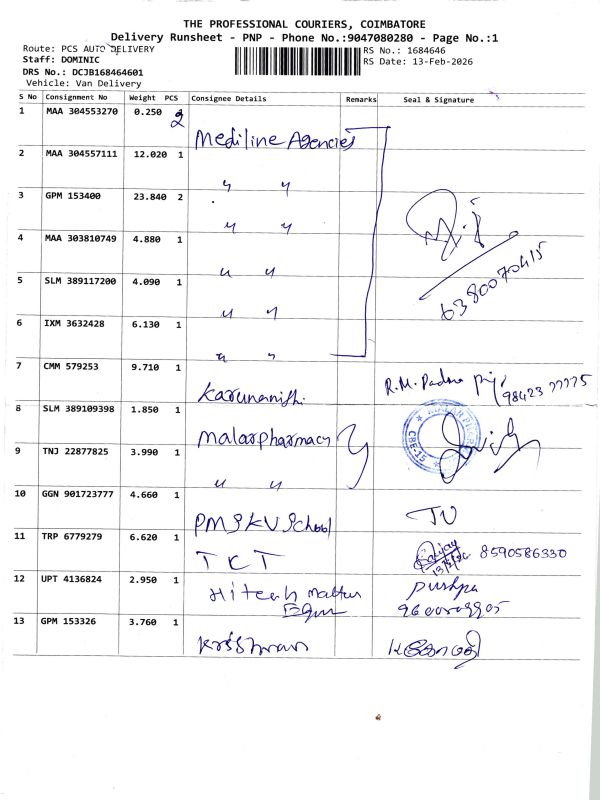 THE PROFESSIONAL COURIERS, COIMBATORE
Delivery Runsheet - PNP - Phone No.:9047080280 - Page No.:1
Route: PCS AUTO DELIVERY
RS No.: 1684646
Staff: DOMINIC
RS Date: 13-Feb-2026
DRS No.: DCJB168464601
Vehicle: Van Delivery
S No Consignment No Weight PCS Consignee Details Remarks Seal & Signature
1 MAA 304553270 0.250 2 Mediline Agencies
2 MAA 304557111 12.020 1 " "
3 GPM 153400 23.840 2 " "
4 MAA 303810749 4.880 1 " "
5 SLM 389117200 4.090 1 " "
6380070415
6 IXM 3632428 6.130 1 " "
7 CMM 579253 9.710 1 Karunanithi R.M. Padma
8 SLM 389109398 1.850 1 Malarpharmacy CBE-15
9 TNJ 22877825 3.990 1 " "
10 GGN 901723777 4.660 1 School
11 TRP 6779279 6.620 1 TCT 8590586330
12 UPT 4136824 2.950 1 Hitesh pushpa
13 GPM 153326 3.760 1